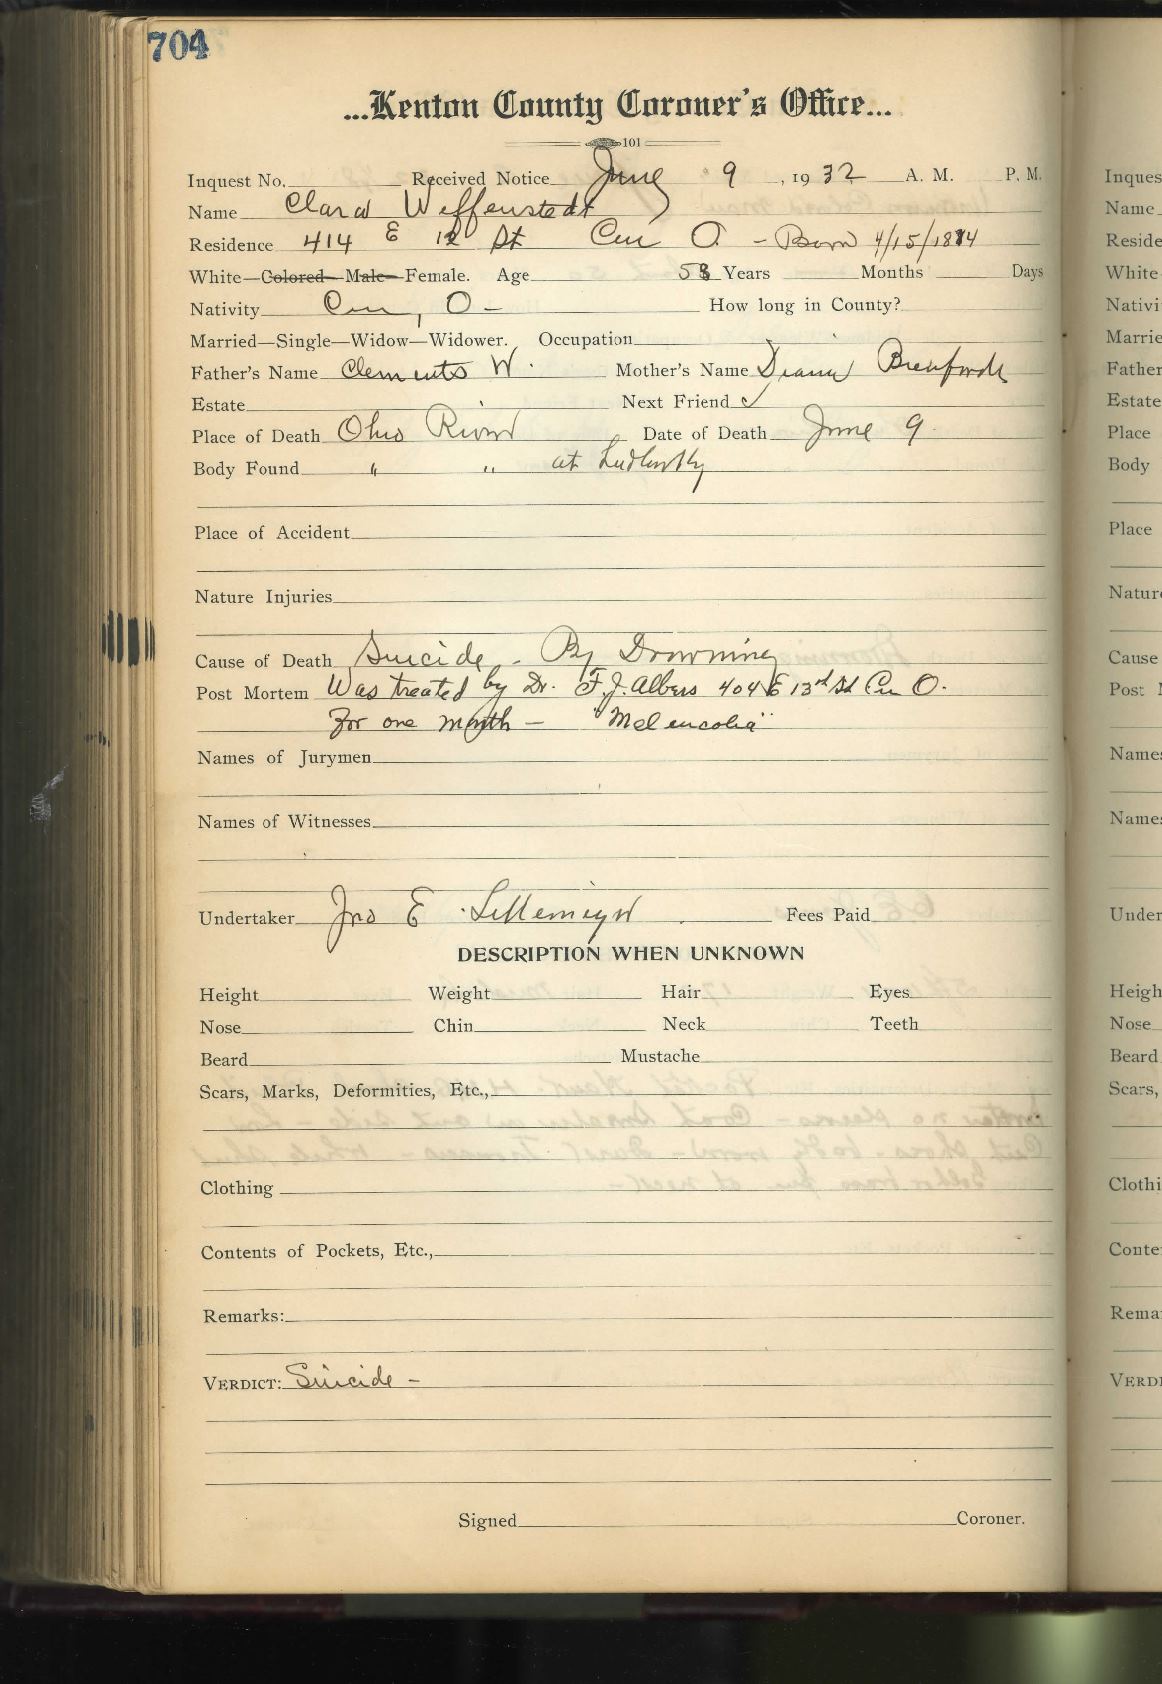 704
...Kenton County Coroner's Office...
101
Inquest No. Received Notice June 9, 1932 A. M. P. M.
Name Clara Weffenstedt
Residence 414 E 12 St Cin O. - Born 4/15/1874
White—Colored—Male—Female. Age 58 Years Months Days
Nativity Cin, O -
How long in County?
Married—Single—Widow—Widower. Occupation
Father's Name Clements W. Mother's Name
Estate Next Friend ✓
Place of Death Ohio River Date of Death June 9
Body Found " " at Ludlow Ky
Place of Accident
Nature Injuries
Cause of Death Suicide - By Drowning
Post Mortem Was treated by Dr. F. J. Albers 404 E 13th St Cin O.
For one month - "Melencolia"
Names of Jurymen
Names of Witnesses
Undertaker Jno E Fees Paid
DESCRIPTION WHEN UNKNOWN
Height Weight Hair Eyes
Nose Chin Neck Teeth
Beard Mustache
Scars, Marks, Deformities, Etc.,
Clothing
Contents of Pockets, Etc.,
Remarks:
VERDICT: Suicide -
Signed Coroner.
Inques
Name
Reside
White
Nativi
Marrie
Father
Estate
Place
Body
Place
Nature
Cause
Post
Names
Names
Under
Heigh
Nose
Beard
Scars,
Clothi
Conte
Rema
VERDI